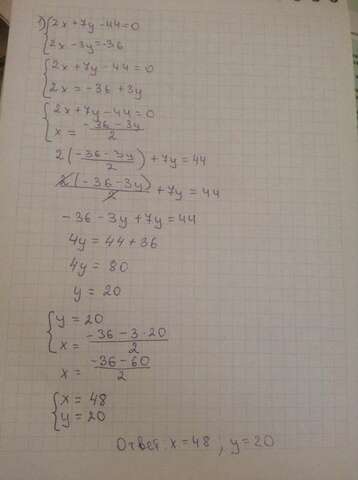 1) { 2x+7y-44=0
2x-3y=-36
{ 2x+7y-44=0
2x=-36+3y
{ 2x+7y-44=0
x= (-36-3y)/2
2((-36-3y)/2)+7y=44
2(-36-3y)/2+7y=44
-36-3y+7y=44
4y=44+36
4y=80
y=20
{ y=20
x= (-36-3·20)/2
x= (-36-60)/2
{ x=48
y=20
Ответ: x=48; y=20